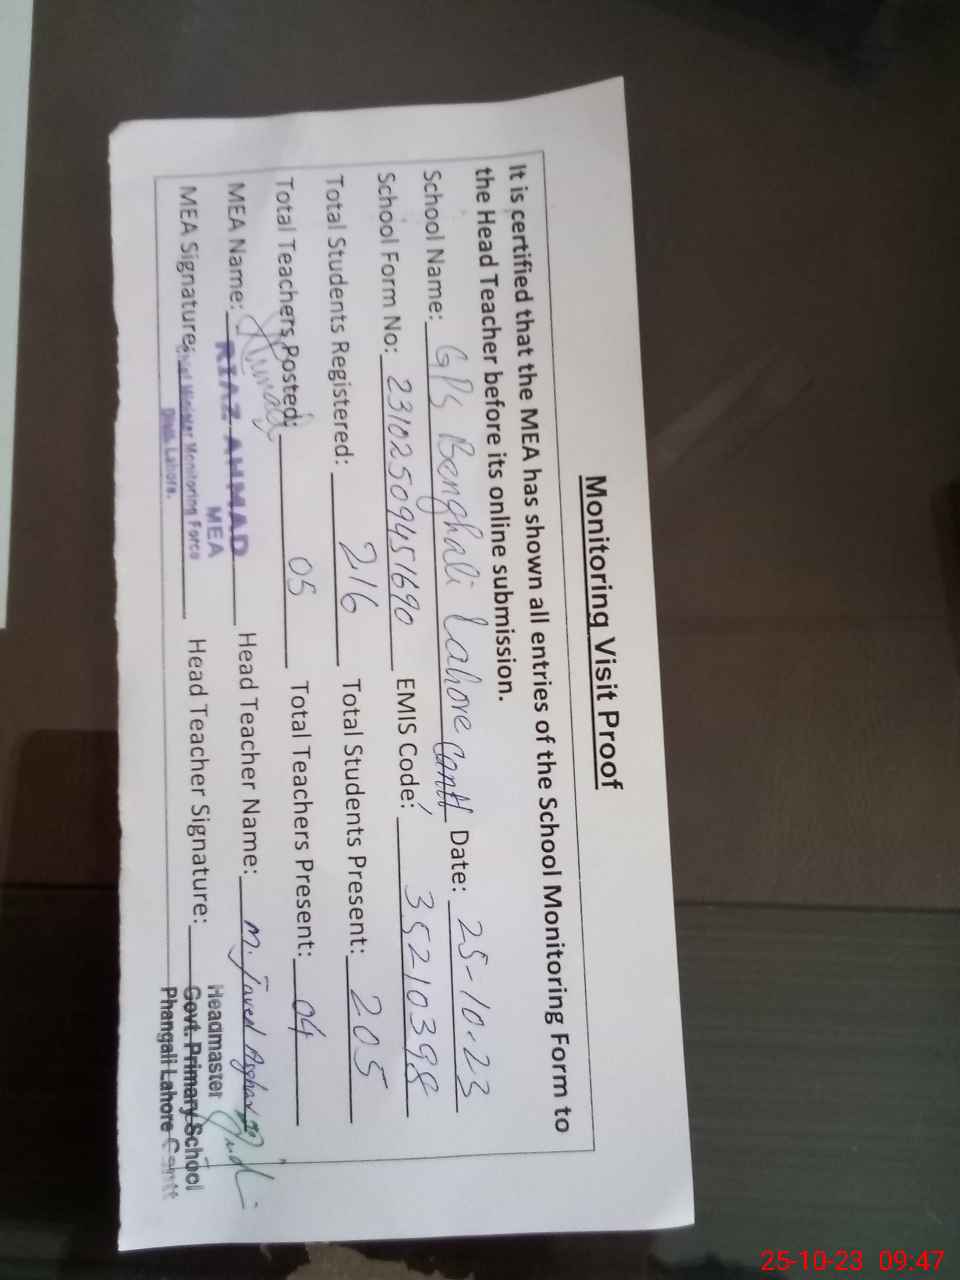 Monitoring Visit Proof
It is certified that the MEA has shown all entries of the School Monitoring Form to
the Head Teacher before its online submission.
School Name: GPS Banghali Lahore Cantt Date: 25-10-23
School Form No: 23102509451690 EMIS Code: 35210398
Total Students Registered: 216 Total Students Present: 205
Total Teachers Posted: 05 Total Teachers Present: 04
MEA Name: RIAZ AHMAD Head Teacher Name: M. Javed Asghar
MEA
MEA Signature: Chief Minister Monitoring Force Head Teacher Signature:
Distt. Lahore.
Headmaster
Govt. Primary School
Phangali Lahore Cantt
25-10-23 09:47